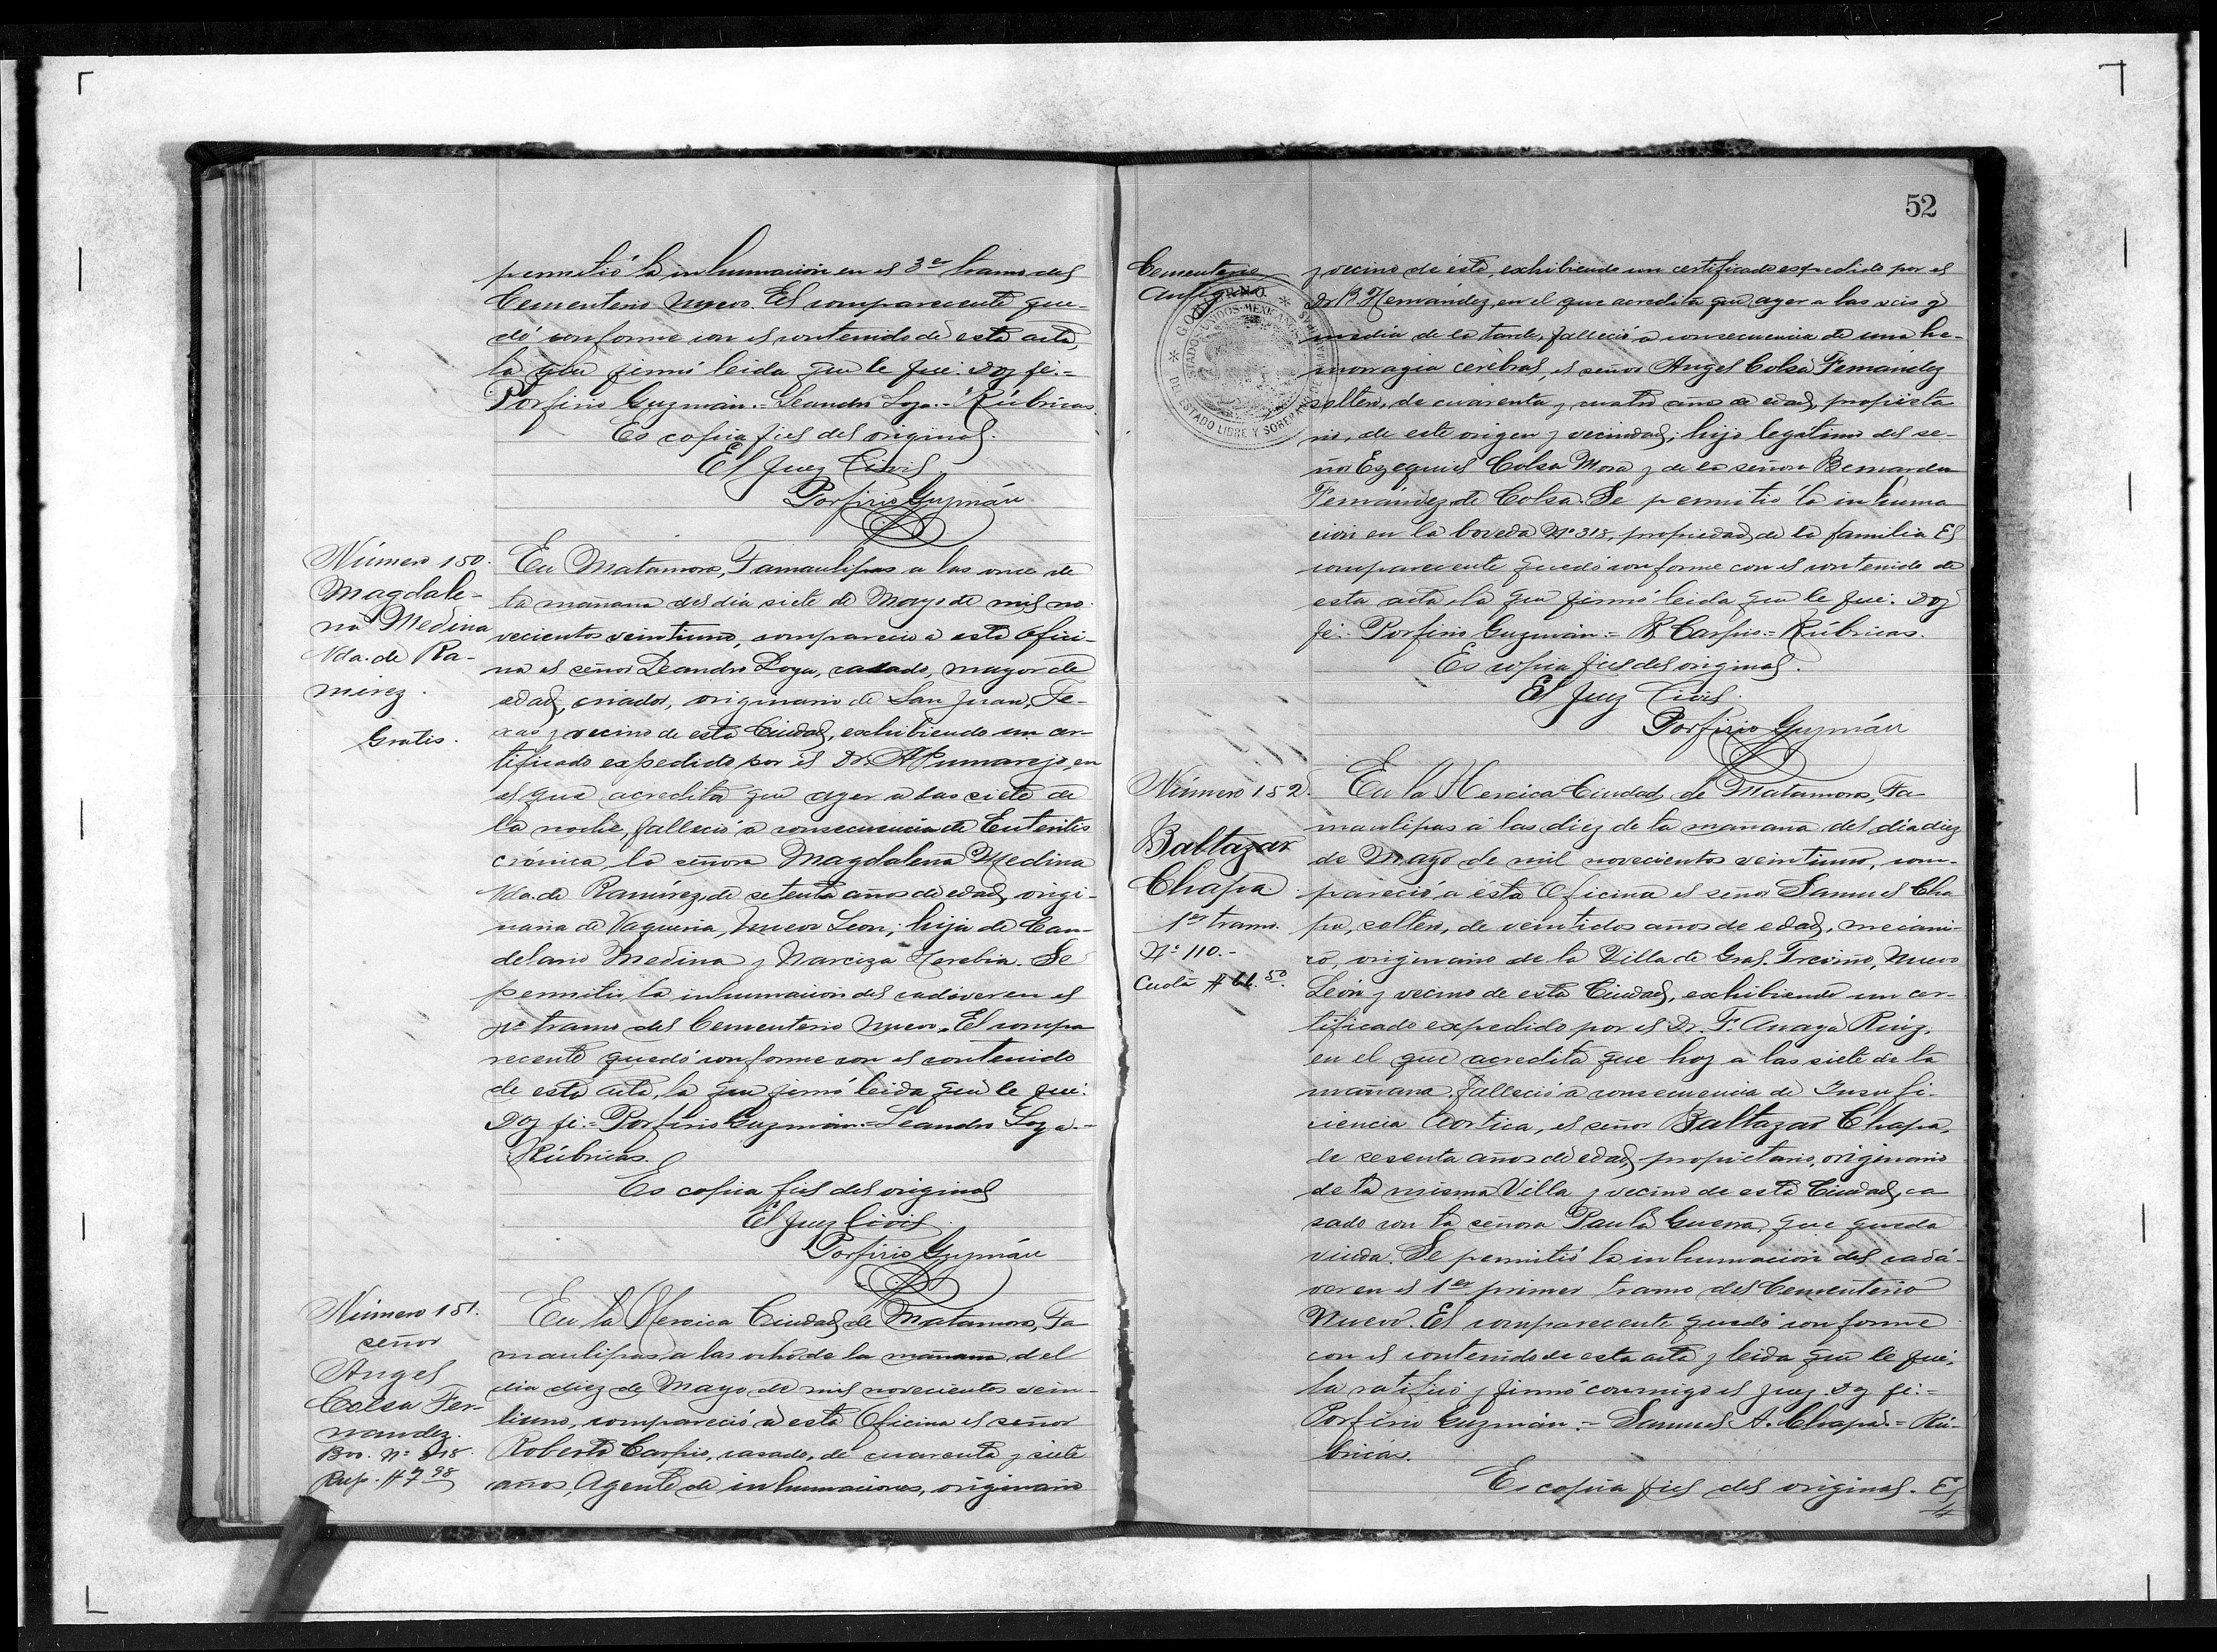 permitió la inhumación en el 3er tramo del
Cementerio Nuevo. El compareciente que-
dó conforme con el contenido de esta acta,
la que firmó leida que le fue. Doy fé.=
Porfirio Guzmán.= Leandro Loya.= Rúbricas.
Es copia fiel del original.
El Juez Civil
Porfirio Guzmán
Número 150.
Magdale-
na Medina
Vda. de Ra-
mirez.
Gratis.
En Matamoros, Tamaulipas a las once de
la mañana del día siete de Mayo de mil no-
vecientos veintiuno, compareció a esta Ofici-
na el señor Leandro Loya, casado, mayor de
edad, criador, originario de San Juan, Te-
xas y vecino de esta Ciudad, exhibiendo un cer-
tificado expedido por el Dr. A Pumarejo, en
el que acredita que ayer a las siete de
la noche, falleció a consecuencia de Enteritis
crónica la señora Magdalena Medina
Vda. de Ramírez, de setenta años de edad, origi-
naria de Vaqueria, Nuevo Leon; hija de Can-
delario Medina y Narciza Herebia. Se
permitió la inhumación del cadáver en el
tramo del Cementerio Nuevo. El compa
reciente quedó conforme con el contenido
de esta acta, la que firmó leida que le fué.
Doy fé.= Porfirio Guzmán.= Leandro Loya.=
Rúbricas.
Es copia fiel del original
El Juez Civil
Porfirio Guzmán
Número 151.
señor
Angel
Colsa Fer-
nandez.
Bov. Nº 318
Rep. #7 98
En la Heroica Ciudad de Matamoros, Ta
maulipas, a las ocho de la mañana del
dia diez de Mayo de mil novecientos vein-
tiuno, compareció a esta Oficina el señor
Roberto Carpio, casado, de cuarenta y siete
años, Agente de inhumaciones, originario
52
Cementerio
Antiguo
GOBIERNO
DEL ESTADO LIBRE Y SOBERANO DE TAMAULIPAS
ESTADOS UNIDOS MEXICANOS
y vecino de ésta, exhibiendo un certificado expedido por el
Dr B. Hernández, en el que acredita que, ayer a las seis y
media de la tarde, falleció a consecuencia de una he-
morragia cerebral, el señor Angel Colsa Fernández
soltero, de cuarenta y cuatro años de edad, propieta
rio, de este origen y vecindad; hijo legítimo del se-
ñor Ezequiel Colsa Mora y de la señora Bernarda
Fernández de Colsa. Se permitió la inhuma
cion en la boveda Nº 318, propiedad de la familia El
compareciente quedó conforme con el contenido de
esta acta, la que firmó leida que le fué. Doy
fé.= Porfirio Guzmán.= R. Carpio.= Rúbricas.
Es copia fiel del original.
El Juez Civil.
Porfirio Guzmán
Número 152.
Baltazar
Chapa.
1er tramo.
Nº 110.-
Cuota # 66.50.
En la Heroica Ciudad de Matamoros, Ta-
maulipas á las diez de la mañana del día diez
de Mayo de mil novecientos veintiuno, com-
pareció a ésta Oficina el señor Samuel Cha
pa, soltero, de veintidos años de edad, mecáni-
co, originario de la Villa de Gral. Treviño, Nuevo
León y vecino de esta Ciudad, exhibiendo un cer-
tificado expedido por el Dr. F. Anaya Ruiz,
en el que acredita que hoy a las siete de la
mañana, falleció a consecuencia de Insufi-
ciencia Aortica, el señor Baltazar Chapa,
de sesenta años de edad, propietario, originario
de la misma Villa y vecino de esta Ciudad, ca
sado con la señora Paula Guerra, que queda
viuda. Se permitió la inhumación del cadá-
ver en el 1er primer tramo del Cementerio
Nuevo. El compareciente quedó conforme
con el contenido de esta acta y leida que le fué,
la ratificó y firmó conmigo el Juez. Doy fé:=
Porfirio Guzmán.= Samuel A. Chapa.= Rú-
bricas.
Es copia fiel del original. El